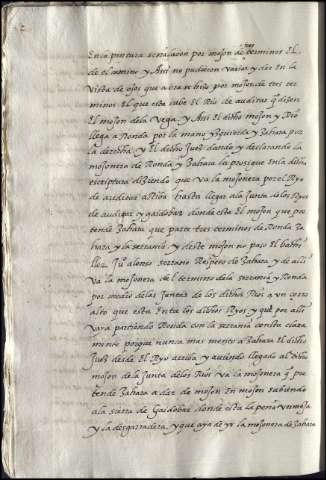 En la pintura senalaron por mojon de terminos El
de el camino y Ansi no pudieron variar y dar En la
vista de ojos que agora se hizo por mojon de tres ter
minos El que esta en El Rio de audita que dizen
El mojon de la Vega y Ansi El dicho mojon y Rio
llega a Ronda por la mano yzquierda y Zahara por
la derecha y El dicho Juez dando y declarando la
mojonera de Ronda y Zahara la prosigue en la dicha
escriptura diziendo que va la mojonera por el Ryo
de audita arriva hasta llegar a la Junta de los Rios
de audita y gaidobar donde esta El mojon que pre
tende Zahara que parte tres terminos de Ronda Za
hara y la serrania y deste mojon no paso El bachi
ller Ju° alonso serrano Respeto de Zahara y de alli
va la mojonera del termino de la serrania y Ronda
por medio de las Juntas de los dichos Rios a un cerro
alto que esta Entre los dichos Ryos y que por alli
vara partiendo Ronda con la serrania consta clara
mente porque nunca mas mento a Zahara El dicho
Juez desde El Ryo arriba y aviendo llegado al dicho
mojon de la Junta de los Rios va la mojonera que pre
tende Zahara a dar de mojon En mojon subiendo
a la sierra de Gaidobar donde esta la pena
y la desgarradera, y que aya de yr la mojonera de Zahara